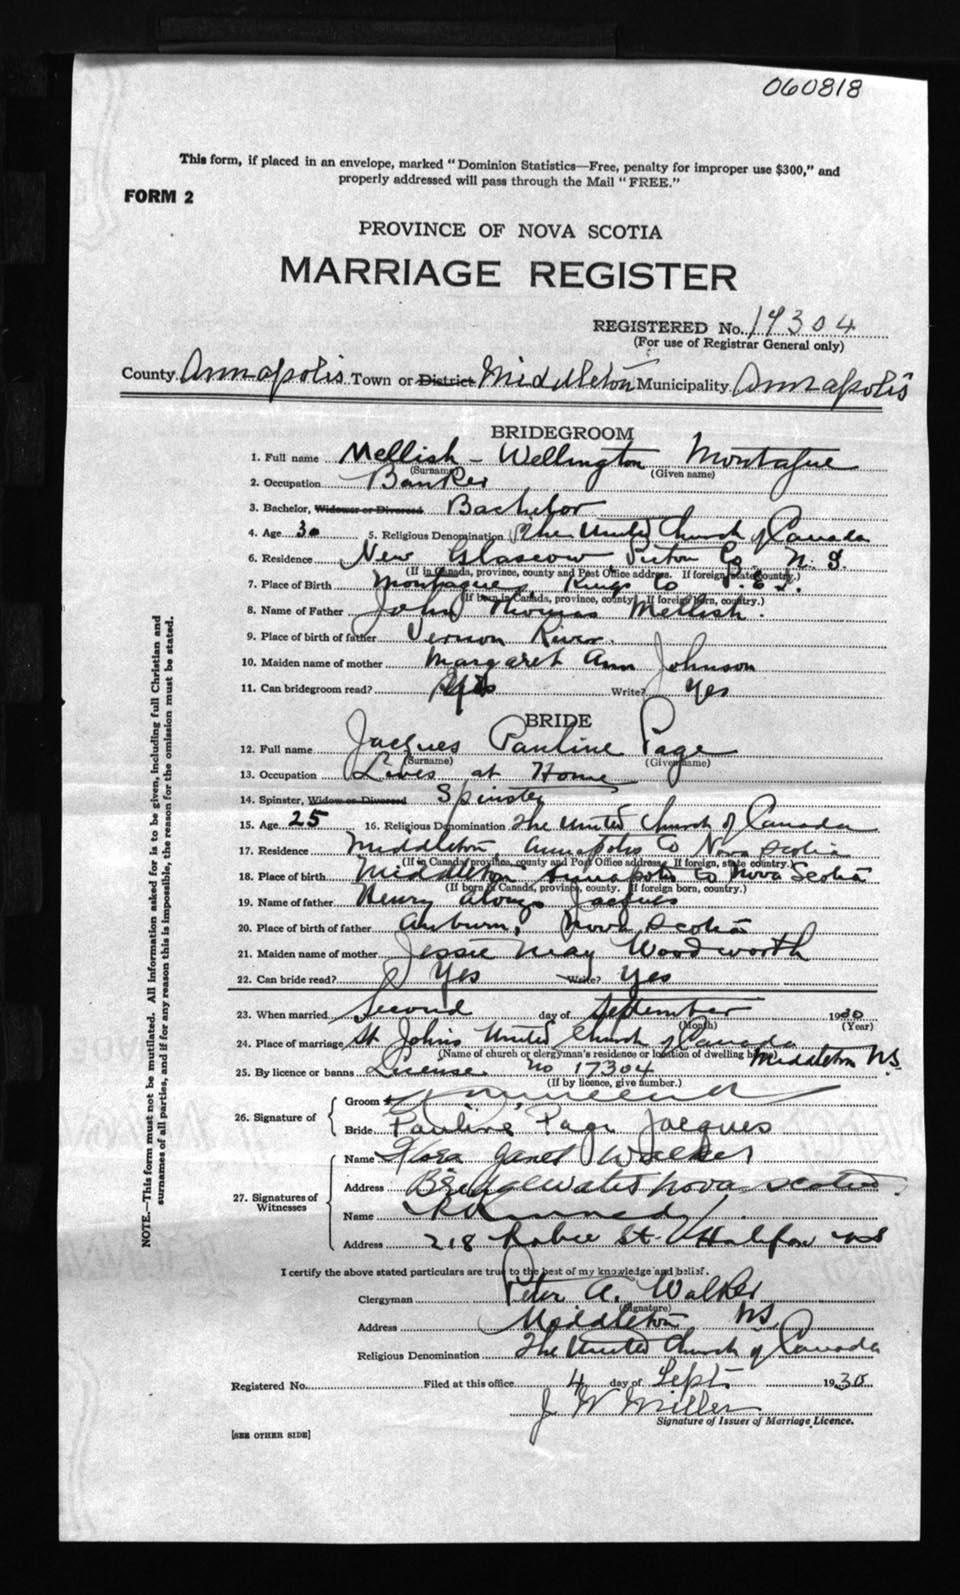 060818
This form, if placed in an envelope, marked "Dominion Statistics—Free, penalty for improper use $300," and
properly addressed will pass through the Mail "FREE."
FORM 2
PROVINCE OF NOVA SCOTIA
MARRIAGE REGISTER
REGISTERED No. 17304
(For use of Registrar General only)
County Annapolis Town or District Middleton Municipality Annapolis
BRIDEGROOM
1. Full name Mellish - Wellington Montague
(Surname) (Given name)
2. Occupation Banker
3. Bachelor, Widower or Divorced Bachelor
4. Age 30 5. Religious Denomination The United Church of Canada
6. Residence New Glasgow Pictou Co N. S.
(If in Canada, province, county and Post Office address. If foreign, state country.)
7. Place of Birth Montague, Kings Co P.E.I.
(If born in Canada, province, county. If foreign born, country.)
8. Name of Father John Thomas Mellish.
9. Place of birth of father Vernon River.
10. Maiden name of mother Margaret Ann Johnson
11. Can bridegroom read? Yes Write? Yes
BRIDE
12. Full name Jacques Pauline Page
(Surname) (Given name)
13. Occupation Lives at Home
14. Spinster, Widow or Divorced Spinster
15. Age 25 16. Religious Denomination The United Church of Canada
17. Residence Middleton, Annapolis Co Nova Scotia
(If in Canada, province, county and Post Office address. If foreign, state country.)
18. Place of birth Middleton Annapolis Co Nova Scotia
(If born in Canada, province, county. If foreign born, country.)
19. Name of father Henry Alonzo Jacques
20. Place of birth of father Auburn, Nova Scotia
21. Maiden name of mother Jessie May Woodworth
22. Can bride read? Yes Write? Yes
23. When married Second day of September 1930
(Month) (Year)
24. Place of marriage St Johns United Church of Canada
(Name of church or clergyman's residence or location of dwelling house) Middleton N.S.
25. By licence or banns License no 17304
(If by licence, give number.)
26. Signature of
Groom
Bride Pauline Page Jacques
27. Signatures of Witnesses
Name Janet Walker
Address Bridgewater Nova Scotia.
Name Kennedy
Address 218 Robie St. Halifax NS
I certify the above stated particulars are true to the best of my knowledge and belief.
Clergyman Peter A. Walker
(Signature)
Address Middleton NS
Religious Denomination The United Church of Canada
Registered No. Filed at this office 4 day of Sept 1930
J W Miller
Signature of Issuer of Marriage Licence.
[SEE OTHER SIDE]
NOTE.—This form must not be mutilated. All information asked for is to be given, including full Christian and
surnames of all parties, and if for any reason this is impossible, the reason for the omission must be stated.